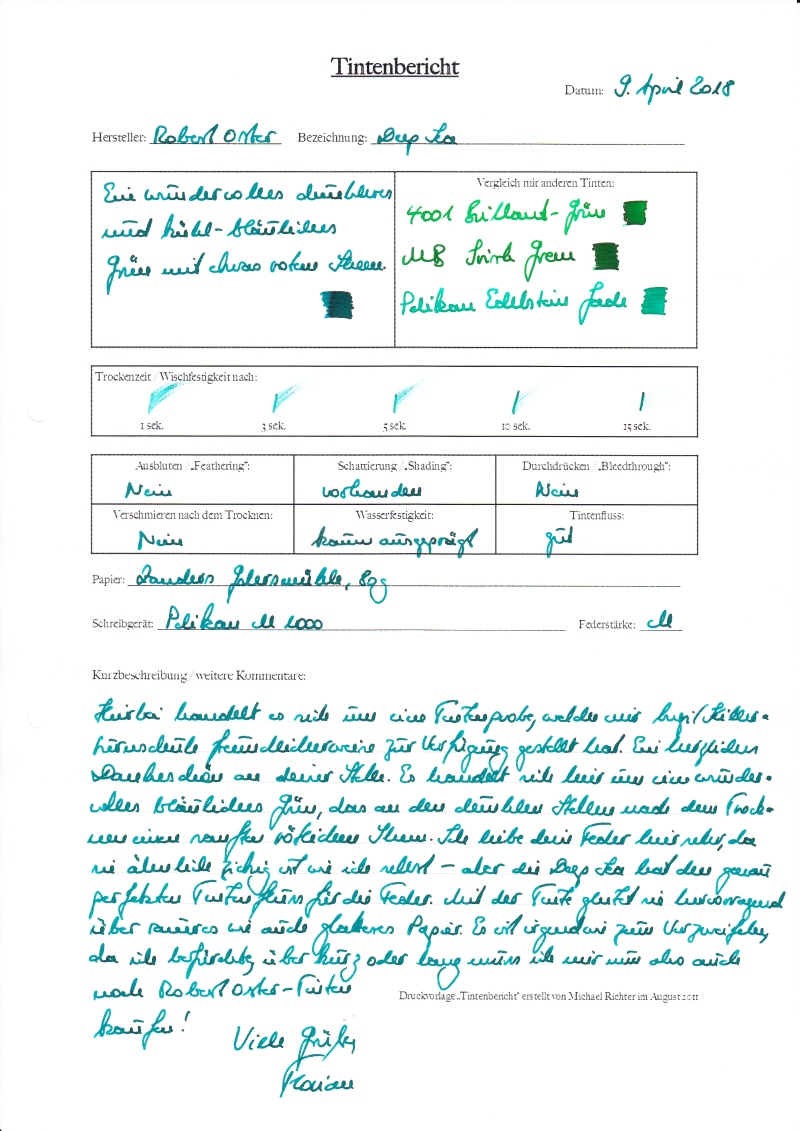 Tintenbericht
Datum: 9. April 2018
Hersteller: Robert Oster Bezeichnung: Deep Sea
Ein wundervolles dunkleres
und kühl-bläuliches
Grün mit etwas rotem Sheen.
Vergleich mit anderen Tinten:
4001 Brillant-Grün
MB Irish Green
Pelikan Edelstein Jade
Trockenzeit / Wischfestigkeit nach:
1 sek. 3 sek. 5 sek. 10 sek. 15 sek.
Ausbluten / „Feathering": Schattierung / „Shading": Durchdrücken / „Bleedthrough":
Nein vorhanden Nein
Verschmieren nach dem Trocknen: Wasserfestigkeit: Tintenfluss:
Nein kaum ausgeprägt gut
Papier: Zanders Gohrsmühle, 80g
Schreibgerät: Pelikan M 1000 Federstärke: M
Kurzbeschreibung / weitere Kommentare:
Hierbei handelt es sich um eine Tintenprobe, welche mir
freundlicherweise zur Verfügung gestellt hat. Ein herzliches
Dankeschön an deiner Stelle. Es handelt sich hier um ein wunder-
volles bläuliches Grün, das an den dunklen Stellen nach dem Trock-
nen einen sanften rötlichen Sheen. Ich liebe diese Feder hier sehr, da
sie ähnlich zickig ist wie ich selbst – aber die Deep Sea hat den genau
perfekten Tintenfluss für die Feder. Mit der Tinte gleitet sie hervorragend
über raueres wie auch glatteres Papier. Es ist irgendwie zum Verzweifeln,
da ich befürchte, über kurz oder lang muss ich mir nun also auch
noch Robert Oster-Tinten
Druckvorlage „Tintenbericht" erstellt von Michael Richter im August 2011
kaufen!
Viele Grüße,
Florian